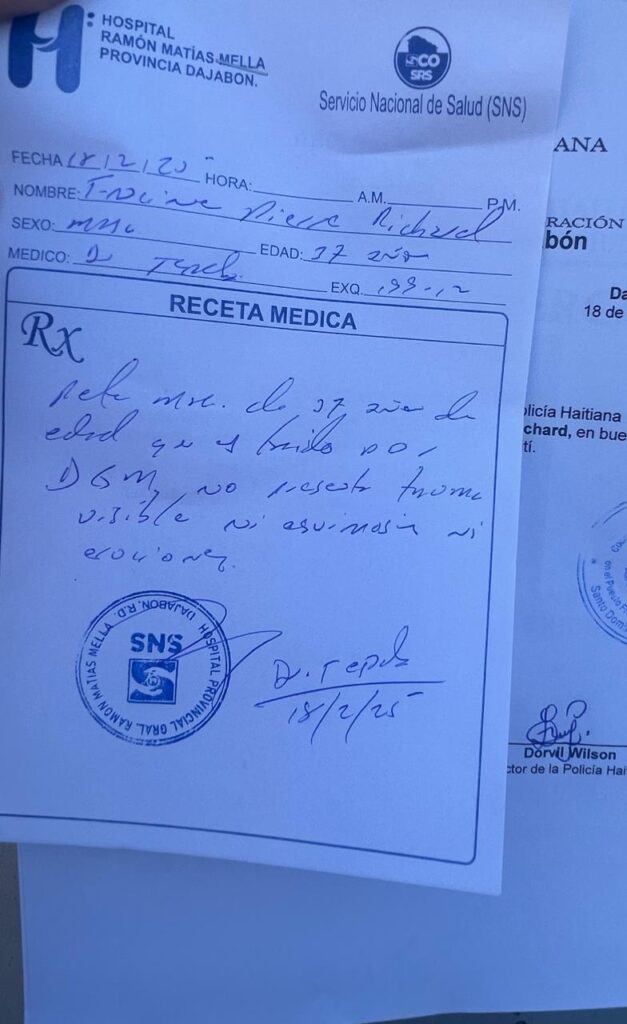 HOSPITAL
RAMÓN MATÍAS MELLA
PROVINCIA DAJABON.
SRS
Servicio Nacional de Salud (SNS)
FECHA 18/2/25 HORA: A.M. P.M.
NOMBRE: Pierre Richard
SEXO: Msc EDAD: 37 año
MEDICO: D EXQ.
RECETA MEDICA
Rx
msc. de 37 año de
edad que es traido por
DGM no presenta trauma
visible ni equimosis ni
eroriones.
HOSPITAL PROVINCIAL GRAL. RAMON MATIAS MELLA DAJABON, R.D.
SNS
18/2/25
ANA
RACIÓN
bón
Da
18 de
olicía Haitiana
chard, en bue
tí.
en el Pueblo F
Santo Domi
Dorvil Wilson
ctor de la Policía Hai